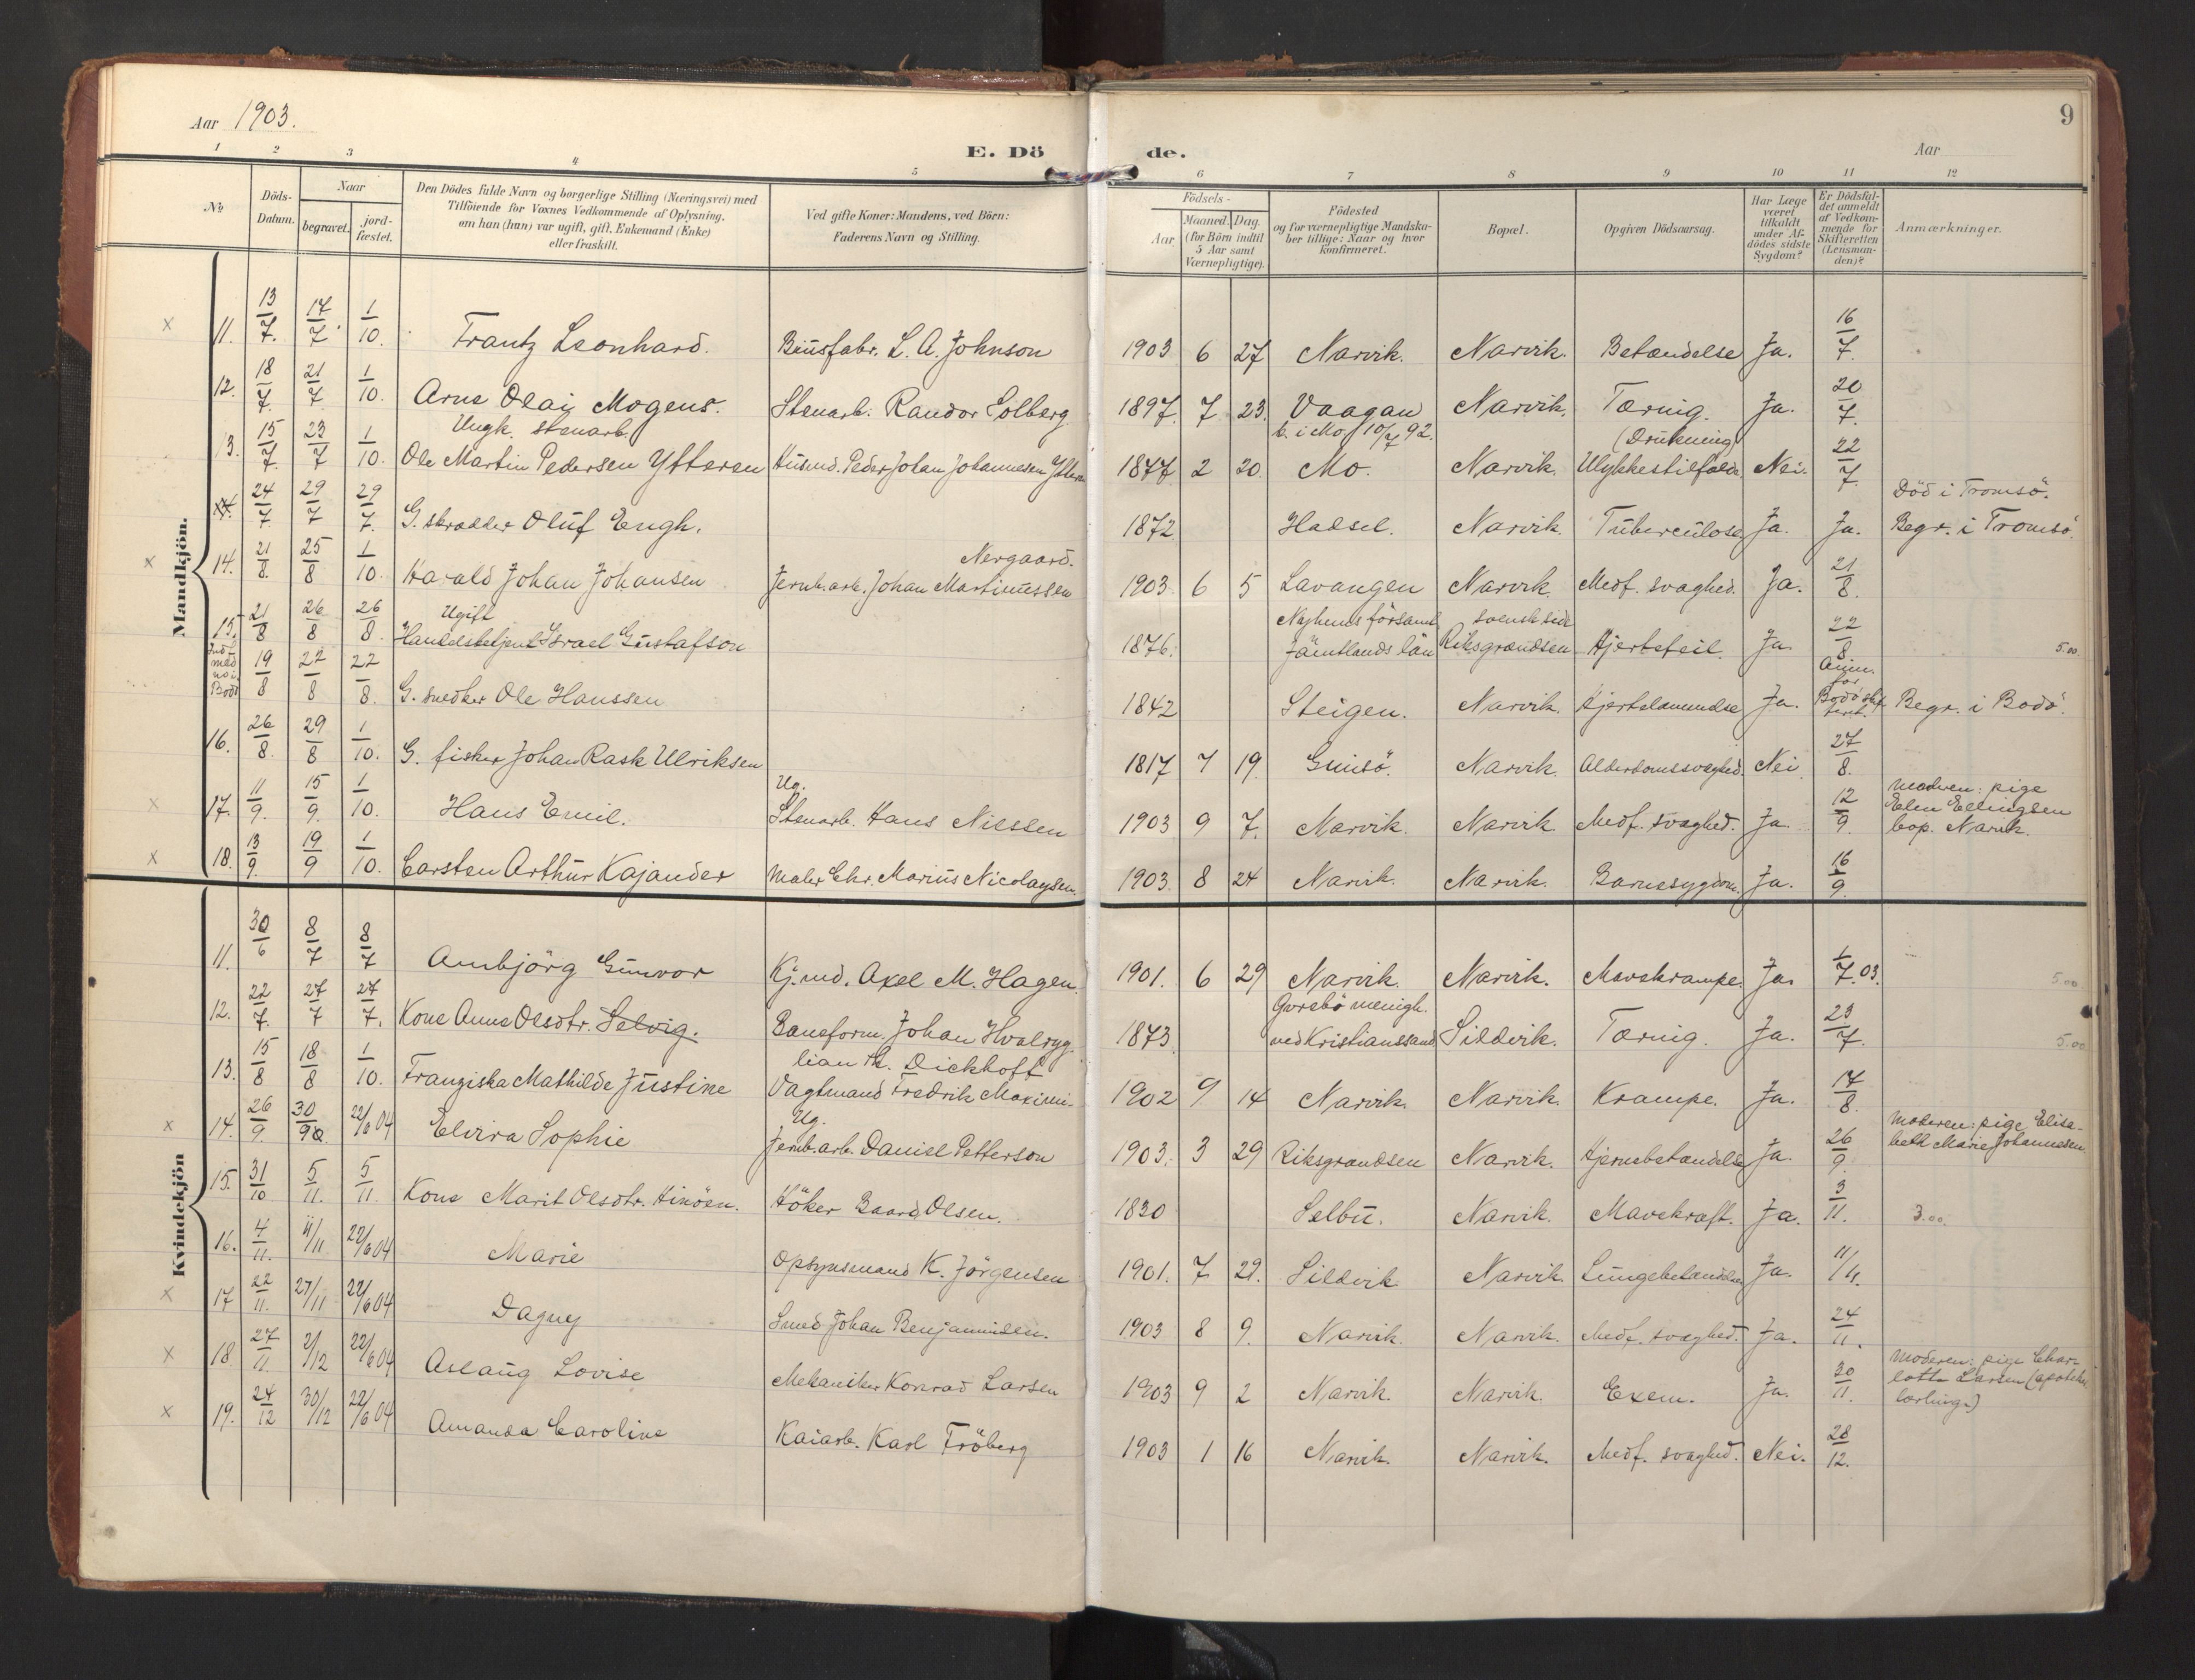 Aar 1903.
E. Döde.
Aar
9
1 2 3 4 5 6 7 8 9 10 11 12
No
Döds-Datum.
Naar
begravet.
jordfæstet.
Den Dödes fulde Navn og borgerlige Stilling (Næringsvei) med
Tilföiende for Voxnes Vedkommende af Oplysning,
om han (hun) var ugift, gift, Enkemand (Enke)
eller fraskilt.
Ved gifte Koner: Mandens, ved Börn:
Faderens Navn og Stilling.
Födsels-
Aar
Maaned. Dag.
(for Börn indtil
5 Aar samt
Værnepligtige).
Födested
og for værnepligtige Mandska-
ber tillige: Naar og hvor
konfirmeret.
Bopæl.
Opgiven Dödsaarsag.
Har Læge
været
tilkaldt
under Af-
dödes sidste
Sygdom?
Er Dödsfal-
det anmeldt
af Vedkom-
mende for
Skifteretten
(Lensman-
den)?
Anmærkninger.
Mandkjön.
11. 13/7. 17/7. 1/10. Frantz Leonhard. Brusfabr. L. A. Johnson 1903 6 27 Narvik. Narvik. Betændelse Ja. 16/7.
12. 18/7. 21/7 1/10. Arne Olai Mogens. Stenarb. Randor Solberg 1897. 7 23. Vaagan Narvik. Tæring. Ja. 20/7.
Ungk. stenarb. k. i Mo 10/7 92. (Drukning)
13. 15/7. 23/7 1/10. Ole Martin Pedersen Ytteren Husmd. Peder Johan Johannesen Ytteren 1877 2 20. Mo. Narvik. Ulykkestilfælde Nei. 22/7.
14. 24/7. 29/7 29/7. G. skrædder Oluf Engh. 1872 Hadsel. Narvik. Tuberculose Ja. Ja. Död i Tromsö.
Begr. i Tromsö.
Nergaard.
14. 21/8. 25/8 1/10. Harald Johan Johansen Jernb.arb. Johan Martinussen 1903. 6 5 Lavangen Narvik. Medf. svaghed. Ja. 21/8.
Ugift församl. svensk side
15. 21/8 26/8 26/8. Handelsbetjent Israel Gustafson 1876. Jämtlands län Riksgrændsen Hjertefeil. Ja. 22/8 5.00
Indf.
med
no i
Bodö 19/8 22/8 22/8. G. snedker Ole Hanssen 1842 Steigen. Narvik. Hjertelammelse Ja. Anm.
for
Bodö skifteret. Begr. i Bodö.
16. 26/8. 29/8 1/10. G. fisker Johan Rask Ulriksen 1817 7 19. Gimsö. Narvik. Alderdomssvaghed. Nei. 27/8.
Ug.
17. 11/9. 15/9. 1/10. Hans Emil. Stenarb. Hans Nilssen 1903 9 7. Narvik. Narvik. Medf. svaghed. Ja. 12/9. Moderen: pige
Elen Ellingsen
bop. Narvik.
18. 13/9. 19/9 1/10. Carsten Arthur Kajander Maler Chr. Marius Nicolaysen. 1903. 8 24 Narvik. Narvik. Barnesygdom. Ja. 16/9.
Kvindekjön
11. 30/6 8/7 8/7 Ambjörg Gunvor Kj.md. Axel M. Hagen. 1901. 6 29 Narvik. Narvik. Mavekrampe. Ja. 1/7.03. 5.00
menigh.
12. 22/7. 27/7 27/7. Kone Anne Olsdtr. Selvig. Baneform. Johan 1873. ved Kristianssand Sildvik. Tæring. Ja. 23/7. 5.00
lian Th. Dickhoft
13. 15/8 18/8 1/10. Franziska Mathilde Justine Vagtmand Fredrik Maximi- 1902 9 14 Narvik. Narvik. Krampe. Ja. 17/8.
Ug.
14. 26/9. 30/9 22/6 04 Elvira Sophie Jernb.arb. Daniel Petterson 1903. 3 29 Riksgrændsen Narvik. Hjernebetændelse Ja. 26/9. Moderen: pige Elisa-
beth Marie Johannesen
15. 31/10 5/11. 5/11 Kone Marit Olsdtr. Höker Baard Olsen. 1830 Selbu. Narvik. Mavekræft. Ja. 3/11. 3.00.
16. 4/11. 11/11 22/6 04 Marie Opsynsmand K. Jörgensen 1901. 7 29. Sildvik Narvik. Lungebetændelse Ja. 11/11.
17 22/11. 27/11 22/6 04 Dagny Smed Johan Benjaminsen. 1903 8 9. Narvik. Narvik. Medf. svaghed. Ja. 24/11.
18. 27/11. 2/12 22/6 04 Aslaug Lovise Mekaniker Konrad Larsen 1903 9 2 Narvik. Narvik. Exem. Ja. 30/11. Moderen: pige Char-
lotte Larsen (apothek-
lærling.)
19. 24/12 30/12 22/6 04 Amanda Caroline Kaiarb. Karl Fröberg 1903 1 16 Narvik. Narvik. Medf. svaghed. Nei. 28/12.